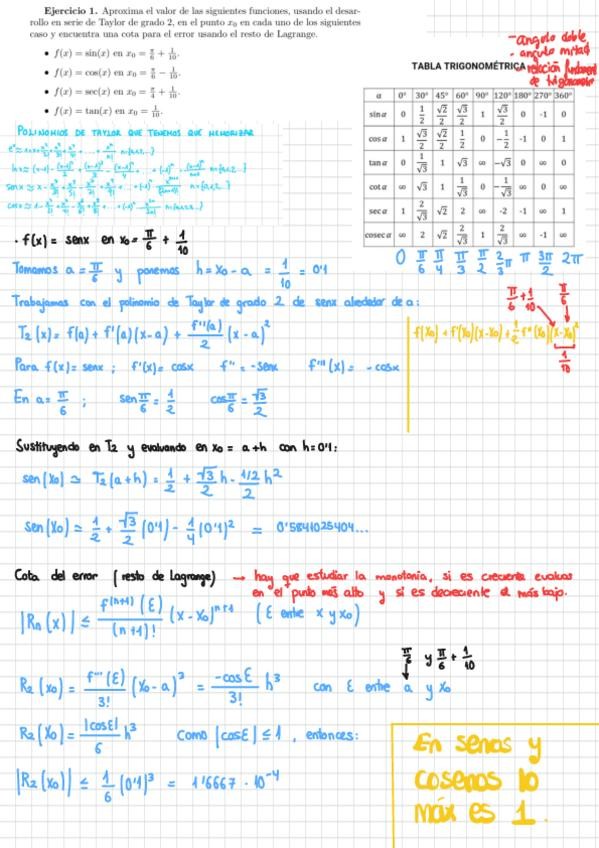 Ejercicio 1. Aproxima el valor de las siguientes funciones, usando el desar-
rollo en serie de Taylor de grado 2, en el punto x₀ en cada uno de los siguientes
caso y encuentra una cota para el error usando el resto de Lagrange.
• f(x) = sin(x) en x₀ = π/6 + 1/10.
• f(x) = cos(x) en x₀ = π/6 − 1/10.
• f(x) = sec(x) en x₀ = π/4 + 1/10.
• f(x) = tan(x) en x₀ = 1/10.
- angulo doble
- angulo mitad
- relación fundament
de trigonometr
TABLA TRIGONOMÉTRICA
α 0° 30° 45° 60° 90° 120° 180° 270° 360°
sin α 0 1/2 √2/2 √3/2 1 √3/2 0 -1 0
cos α 1 √3/2 √2/2 1/2 0 -1/2 -1 0 1
tan α 0 1/√3 1 √3 ∞ -√3 0 ∞ 0
cot α ∞ √3 1 1/√3 0 -1/√3 ∞ 0 ∞
sec α 1 2/√3 √2 2 ∞ -2 -1 ∞ 1
cosec α ∞ 2 √2 2/√3 1 2/√3 ∞ -1 ∞
0 π/6 π/4 π/3 π/2 2π/3 π 3π/2 2π
POLINOMIOS DE TAYLOR QUE TENEMOS QUE MEMORIZAR
· f(x) = senx en x₀ = π/6 + 1/10
Tomamos a = π/6 y ponemos h = x₀ - a = 1/10 = 0'1
Trabajamos con el polinomio de Taylor de grado 2 de senx alrededor de a:
T₂(x) = f(a) + f'(a)(x-a) + f''(a)/2 (x-a)²
π/6 + 1/10 π/6
f(x₀) + f'(x₀)(x-x₀) + 1/2 f''(x₀)(x-x₀)²
1/10
Para f(x) = senx ; f'(x) = cosx f'' = -senx f'''(x) = -cosx
En a = π/6 ; sen π/6 = 1/2 cos π/6 = √3/2
Sustituyendo en T₂ y evaluando en x₀ = a+h con h=0'1:
sen(x₀) ≃ T₂(a+h) = 1/2 + √3/2 h - 1/2/2 h²
sen(x₀) ≃ 1/2 + √3/2 (0'1) - 1/4 (0'1)² = 0'5841025404...
Cota del error (resto de Lagrange) → hay que estudiar la monotonía, si es creciente evaluas
en el punto más alto y si es decreciente el más bajo.
|Rn(x)| ≤ f⁽ⁿ⁺¹⁾(ε)/(n+1)! (x-x₀)ⁿ⁺¹ (ε entre x y x₀)
π/6 y π/6 + 1/10
R₂(x₀) = f'''(ε)/3! (x₀-a)³ = -cosε/3! h³ con ε entre a y x₀
R₂(x₀) = |cosε|/6 h³ Como |cosε| ≤ 1, entonces:
|R₂(x₀)| ≤ 1/6 (0'1)³ = 1'6667 · 10⁻⁴
En senos y
cosenos lo
máx es 1.